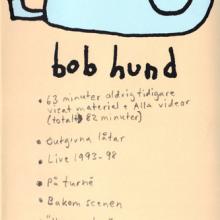 bob hund
• 63 minuter aldrig tidigare
visat material + Alla videor
(totalt 82 minuter)
• Outgivna låtar
• Live 1993-98
• På turné
• Bakom scenen